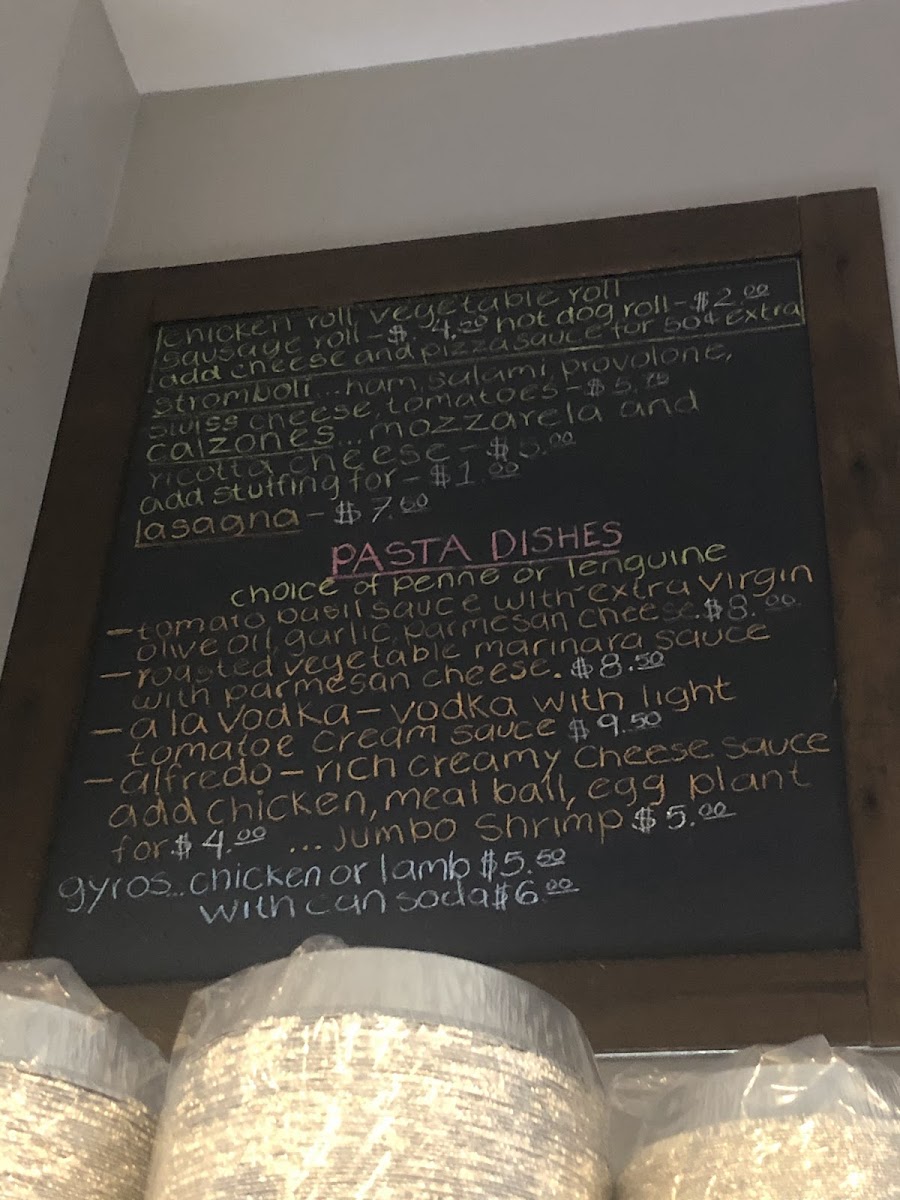 chicken roll vegetable roll
sausage roll - $ 4.50 hot dog roll - $2.00
add cheese and pizza sauce for 50¢ extra
stromboli... ham, salami, provolone,
swiss cheese, tomatoes - $5.75
calzones... mozzarela and
ricotta cheese - $5.00
add stuffing for - $1.00
lasagna - $7.50
PASTA DISHES
choice of penne or lenguine
- tomato basil sauce with extra virgin
olive oil, garlic, parmesan cheese. $8.00
- roasted vegetable marinara sauce
with parmesan cheese. $8.50
- a la vodka - vodka with light
tomatoe cream sauce $9.50
- alfredo - rich creamy cheese sauce
add chicken, meat ball, egg plant
for $4.00 ... jumbo shrimp $5.00
gyros... chicken or lamb $5.50
with can soda $6.00